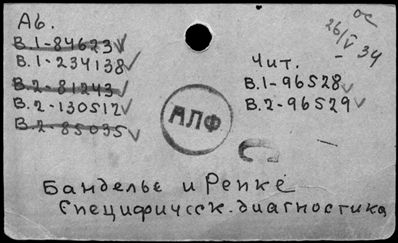 Аб.
ос
26/V 34
В.1-84623
В.1-234138
В.2-81243
В.2-130512
В.2-85035
Чит.
В.1-96528
В.2-96529
АЛФ
Банделье и Репке
Специфическ. диагностика